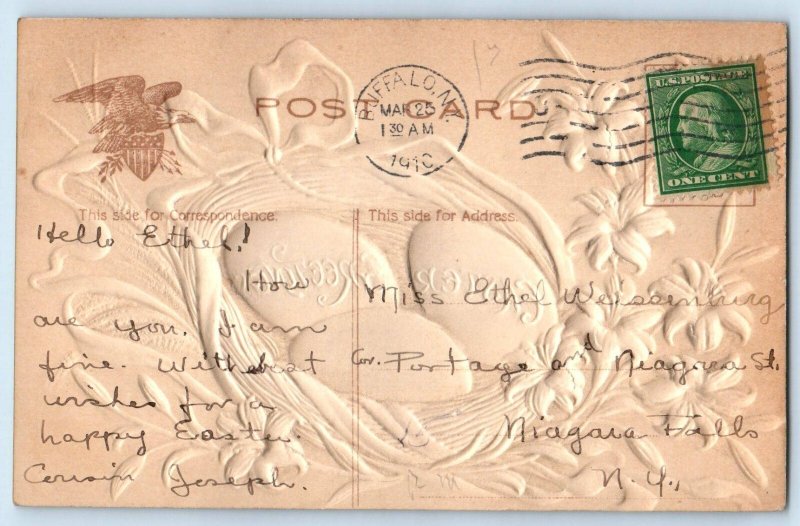 POST CARD
BUFFALO, N.Y.
MAR 25
1 30 AM
1910
U.S. POSTAGE
ONE CENT
This side for Correspondence.
This side for Address.
Hello Ethel!
How
are you. I am
fine. With best
wishes for a
happy Easter.
Cousin Joseph.
Miss Ethel Weissenburg
Cor. Portage and Niagara St.
Niagara Falls
N.Y.,
EASTER
Greeting